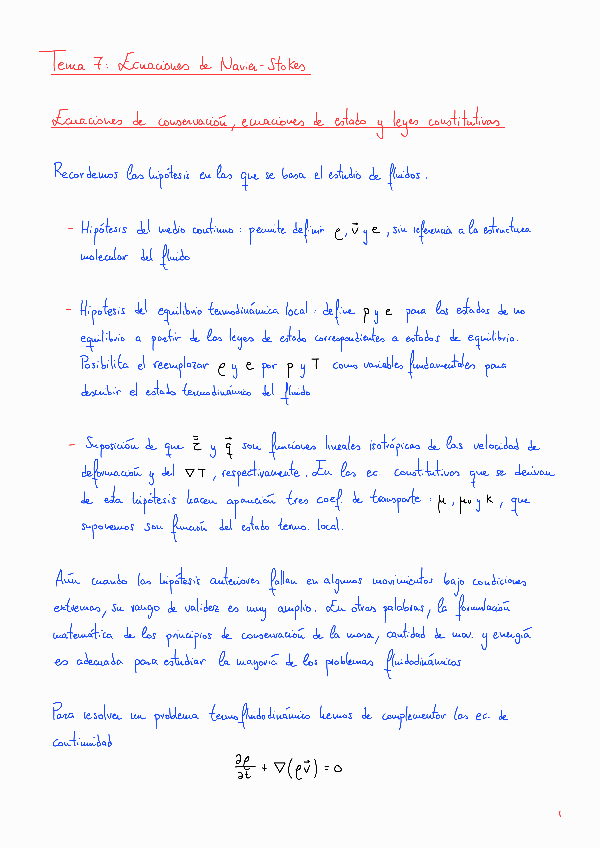 Tema 7: Ecuaciones de Navier-Stokes
Ecuaciones de conservación, ecuaciones de estado y leyes constitutivas
Recordemos las hipótesis en las que se basa el estudio de fluidos.
- Hipótesis del medio continuo: permite definir ρ, v⃗ y e, sin referencia a la estructura
molecular del fluido
- Hipótesis del equilibrio termodinámica local: define p y e para los estados de no
equilibrio a partir de las leyes de estado correspondientes a estados de equilibrio.
Posibilita el reemplazar ρ y e por p y T como variables fundamentales para
describir el estado termodinámico del fluido
- Suposición de que τ̿ y q⃗ son funciones lineales isotrópicas de las velocidad de
deformación y del ∇T, respectivamente. En las ec. constitutivas que se derivan
de esta hipótesis hacen aparición tres coef. de transporte: μ, μv y k, que
suponemos son función del estado termo. local.
Aún cuando las hipótesis anteriores fallan en algunos movimientos bajo condiciones
extremas, su rango de validez es muy amplio. En otras palabras, la formulación
matemática de los principios de conservación de la masa, cantidad de mov. y energía
es adecuada para estudiar la mayoría de los problemas fluidodinámicos
Para resolver un problema termofluidodinámico hemos de complementar las ec. de
continuidad
∂ρ/∂t + ∇(ρv⃗) = 0
1